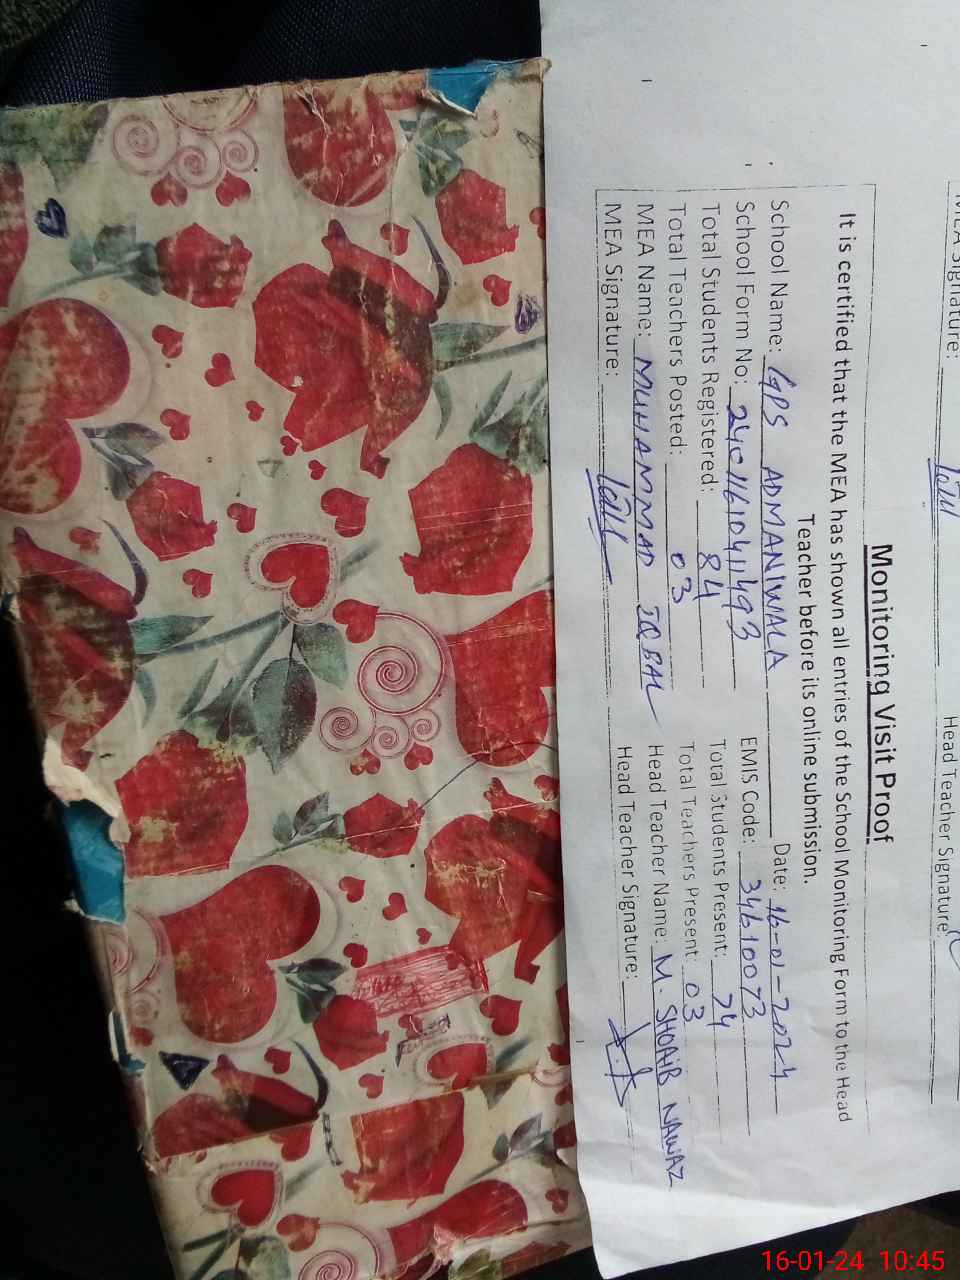 MEA Signature:
Head Teacher Signature:
Monitoring Visit Proof
It is certified that the MEA has shown all entries of the School Monitoring Form to the Head
Teacher before its online submission.
School Name: GPS ADMANIWALA Date: 16-01-2024
School Form No: 2401161041493 EMIS Code: 34610073
Total Students Registered: 84 Total Students Present: 74
Total Teachers Posted: 03 Total Teachers Present: 03
MEA Name: MUHAMMAD IQBAL Head Teacher Name: M. SHOAIB NAWAZ
MEA Signature: Head Teacher Signature:
16-01-24 10:45